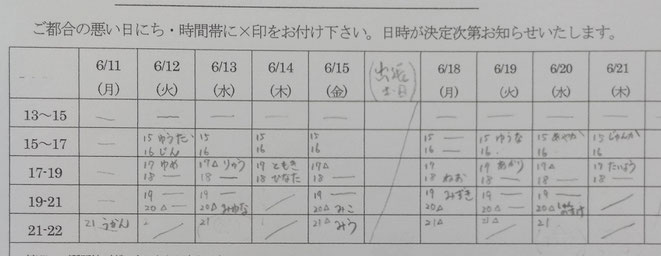 ご都合の悪い日にち・時間帯に×印をお付け下さい。日時が決定次第お知らせいたします。
6/11 6/12 6/13 6/14 6/15 6/18 6/19 6/20 6/21
(月) (火) (水) (木) (金) 土・日 (月) (火) (水) (木)
13～15 — — — — — — — — —
15～17 — 15 ゆうた 15 15 15 15 — 15 ゆうな 15 あやか 15 じゅんか
16 じん 16 16 16 16 — 16 16 16
17-19 — 17 ゆめ 17△ りゅう 17 ともき 17△ 17 17 あかり 17△ 17 たいよう
18 — 18 — 18 ひなた 18 — 18 ねお 18 — 18 — 18 —
19-21 — 19 — 19 — 19 — 19 みずき 19 — 19 —
20△ — 20△ みかな 20△ みこ 20△ 20△ — 20△
21-22 21 うかん 21 21△ みう 21△ 21△ 21